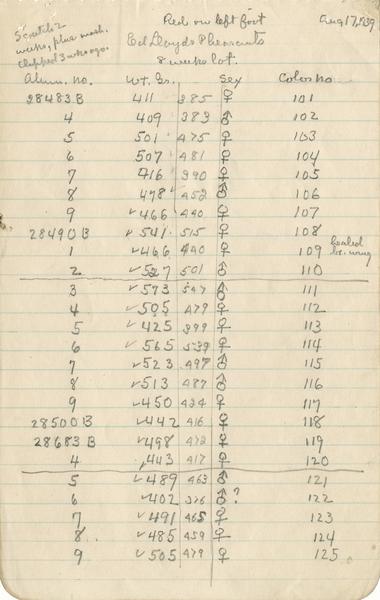 Red on left foot Aug 17, 1939
Scratch 2
weeks, plus mash.
Clipped 3 wks ago.
Ed Lloyds Pheasants
8 weeks lot.
Alum. no. Wt. Grs. Sex Color no.
28483B 411 385 ♀ 101
4 409 383 ♂ 102
5 501 475 ♀ 103
6 507 481 ♀ 104
7 416 390 ♀ 105
8 478 452 ♂ 106
9 ✓466 440 ♀ 107
28490B ✓541 515 ♀ 108
1 ✓466 440 ♀ 109 healed br. wing
2 ✓527 501 ♂ 110
3 ✓573 547 ♂ 111
4 ✓505 479 ♀ 112
5 ✓425 399 ♀ 113
6 ✓565 539 ♀ 114
7 ✓523 497 ♂ 115
8 ✓513 487 ♂ 116
9 ✓450 424 ♀ 117
28500B ✓442 416 ♀ 118
28683B ✓498 472 ♀ 119
4 ✓443 417 ♀ 120
5 ✓489 463 ♂ 121
6 ✓402 376 ♂? 122
7 ✓491 465 ♀ 123
8 ✓485 459 ♀ 124
9 ✓505 479 ♀ 125